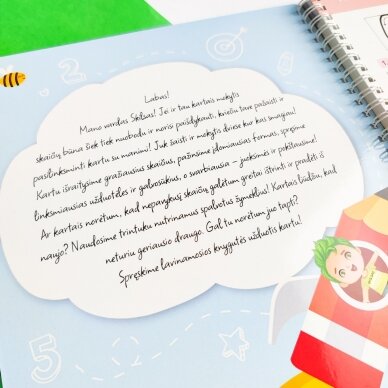 2
Labas!
Mano vardas Skilius! Jei ir tau kartais mokytis
skaičių būna šiek tiek nuobodu ir norisi paišdykauti, kviečiu tave pažaisti ir
pasilinksminti kartu su manimi! Juk žaisti ir mokytis driese kur kas smagiau!
Kartu išraitysime gražiausius skaičius, pažinsime įdomiausias formas, spręsime
linksmiausias užduotėles ir galvosūkius, o svarbiausia – juoksimės ir pokštausime!
Ar kartais norėtum, kad nepavykusį skaičių galėtum greitai ištrinti ir pradėti iš
naujo? Naudosime trintuku nutrinamus spalvotus žymeklius! Kartais liūdžiu, kad
neturiu geriausio draugo. Gal tu norėtum juo tapti?
Spręskime lavinamosios knygutės užduotis kartu!
5